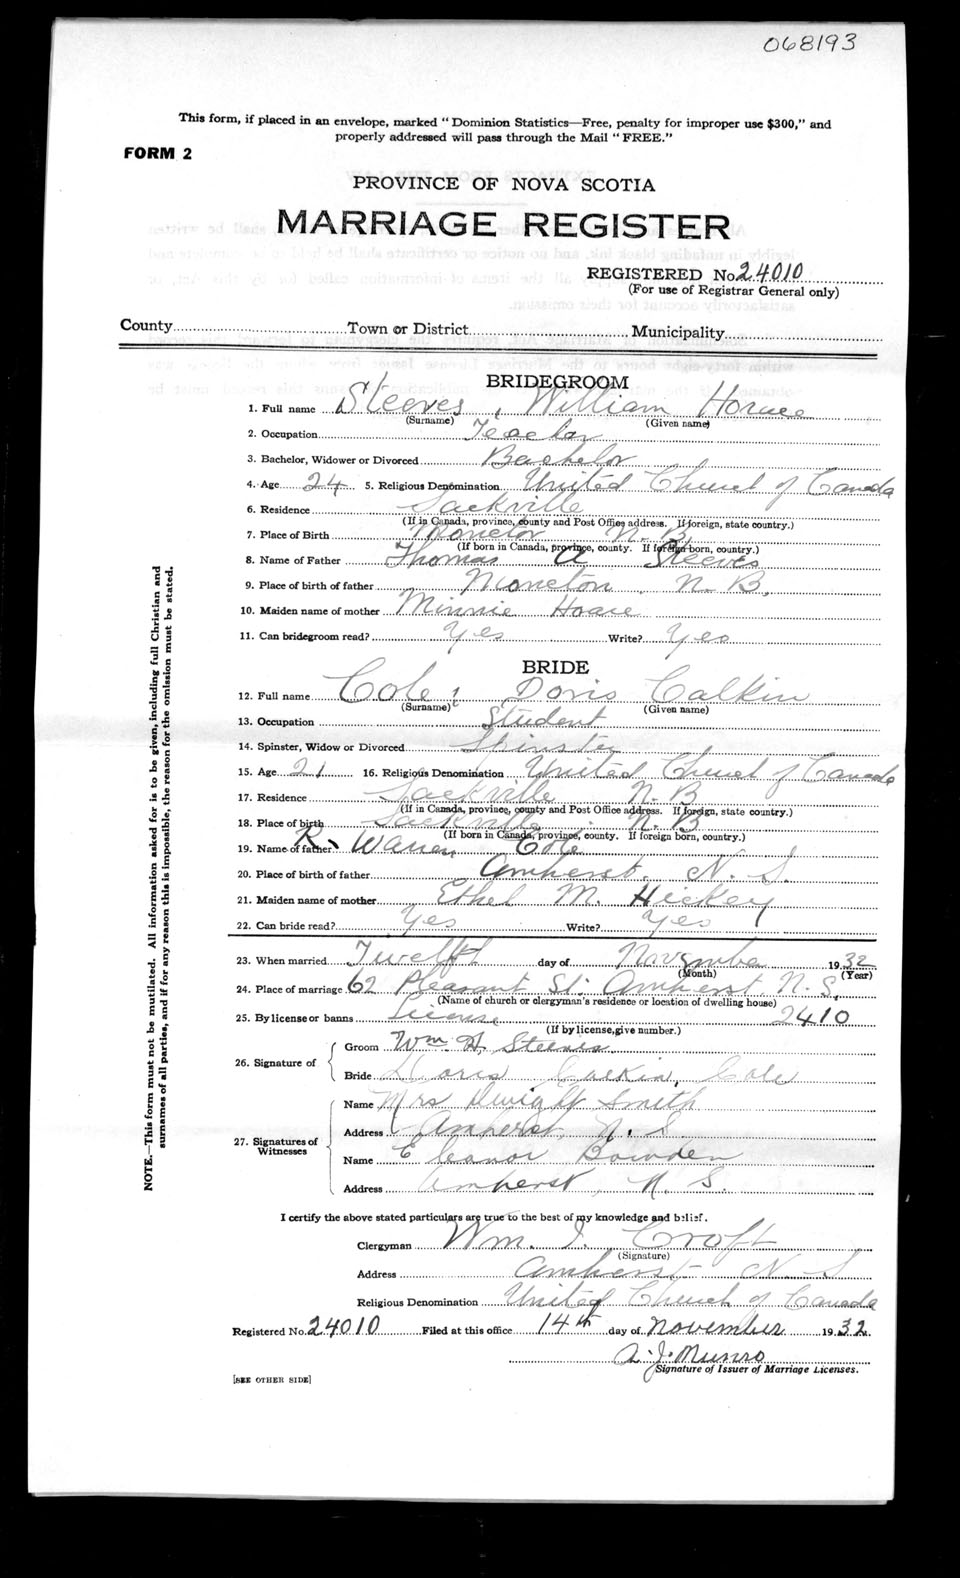 068193
This form, if placed in an envelope, marked "Dominion Statistics—Free, penalty for improper use $300," and
properly addressed will pass through the Mail "FREE."
FORM 2
PROVINCE OF NOVA SCOTIA
MARRIAGE REGISTER
REGISTERED No. 24010
(For use of Registrar General only)
County Town or District Municipality
BRIDEGROOM
1. Full name Steeves, William Horace
(Surname) (Given name)
2. Occupation Teacher
3. Bachelor, Widower or Divorced Bachelor
4. Age 24 5. Religious Denomination United Church of Canada
6. Residence Sackville
(If in Canada, province, county and Post Office address. If foreign, state country.)
7. Place of Birth Moncton N. B.
(If born in Canada, province, county. If foreign born, country.)
8. Name of Father Thomas A Steeves
9. Place of birth of father Moncton, N. B.
10. Maiden name of mother Minnie Hoare
11. Can bridegroom read? Yes Write? Yes
BRIDE
12. Full name Cole, Doris Calkin
(Surname) (Given name)
13. Occupation Student
14. Spinster, Widow or Divorced Spinster
15. Age 21 16. Religious Denomination United Church of Canada
17. Residence Sackville N. B
(If in Canada, province, county and Post Office address. If foreign, state country.)
18. Place of birth Sackville N. B
(If born in Canada, province, county. If foreign born, country.)
19. Name of father R. Warren Cole
20. Place of birth of father Amherst, N. S.
21. Maiden name of mother Ethel M. Hickey
22. Can bride read? Yes Write? Yes
23. When married Twelfth day of November 1932
(Month) (Year)
24. Place of marriage 62 Pleasant St. Amherst, N. S.
(Name of church or clergyman's residence or location of dwelling house)
25. By license or banns License 2410
(If by license, give number.)
26. Signature of
Groom Wm. H. Steeves
Bride Doris Calkin Cole
27. Signatures of Witnesses
Name Mrs Dwight Smith
Address Amherst, N. S.
Name Eleanor Bowden
Address Amherst, N. S.
I certify the above stated particulars are true to the best of my knowledge and belief.
Clergyman Wm. J. Croft
(Signature)
Address Amherst N. S
Religious Denomination United Church of Canada
Registered No. 24010 Filed at this office 14th day of November 1932.
A. J. Munro
Signature of Issuer of Marriage Licenses.
[SEE OTHER SIDE]
NOTE.—This form must not be mutilated. All information asked for is to be given, including full Christian and
surnames of all parties, and if for any reason this is impossible, the reason for the omission must be stated.